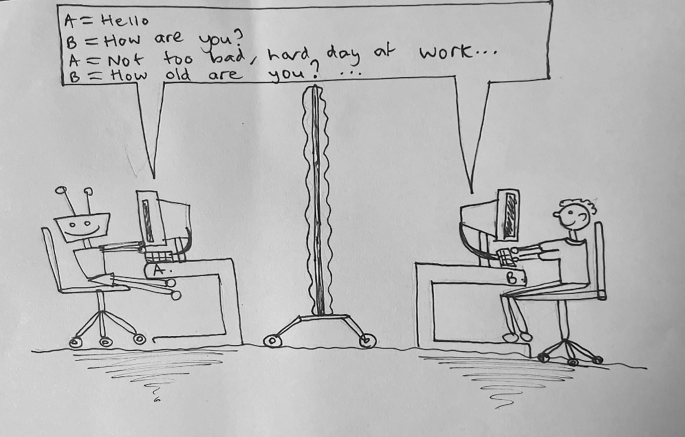 A = Hello
B = How are you?
A = Not too bad, hard day at work...
B = How old are you? ...
A.
B.